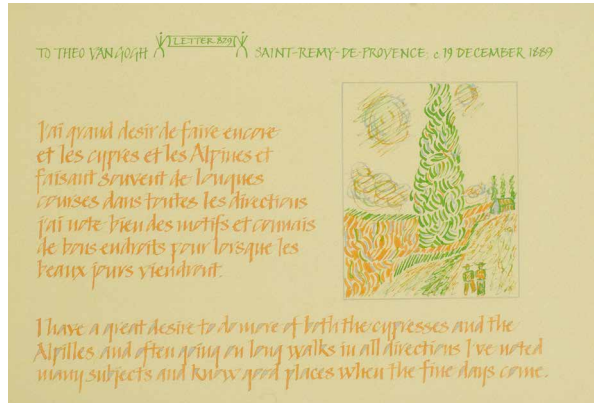 TO THEO VAN GOGH LETTER 829 SAINT-REMY-DE-PROVENCE: c.19 DECEMBER 1889
J'ai grand desir de faire encore
et les cypres et les Alpines et
faisant souvent de longues
courses dans toutes les directions
j'ai note bien des motifs et connais
de bons endroits pour lorsque les
beaux jours viendront.
I have a great desire to do more of both the cypresses and the
Alpilles and often going on long walks in all directions I've noted
many subjects and know good places when the fine days come.